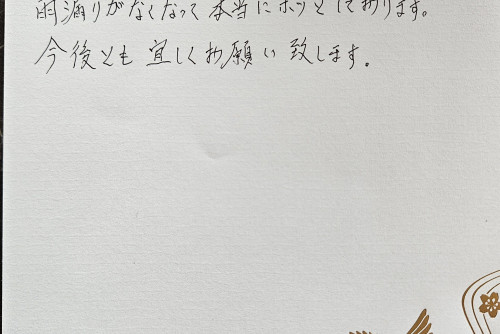 雨漏りがなくなって本当にホッとしております。
今後とも宜しくお願い致します。